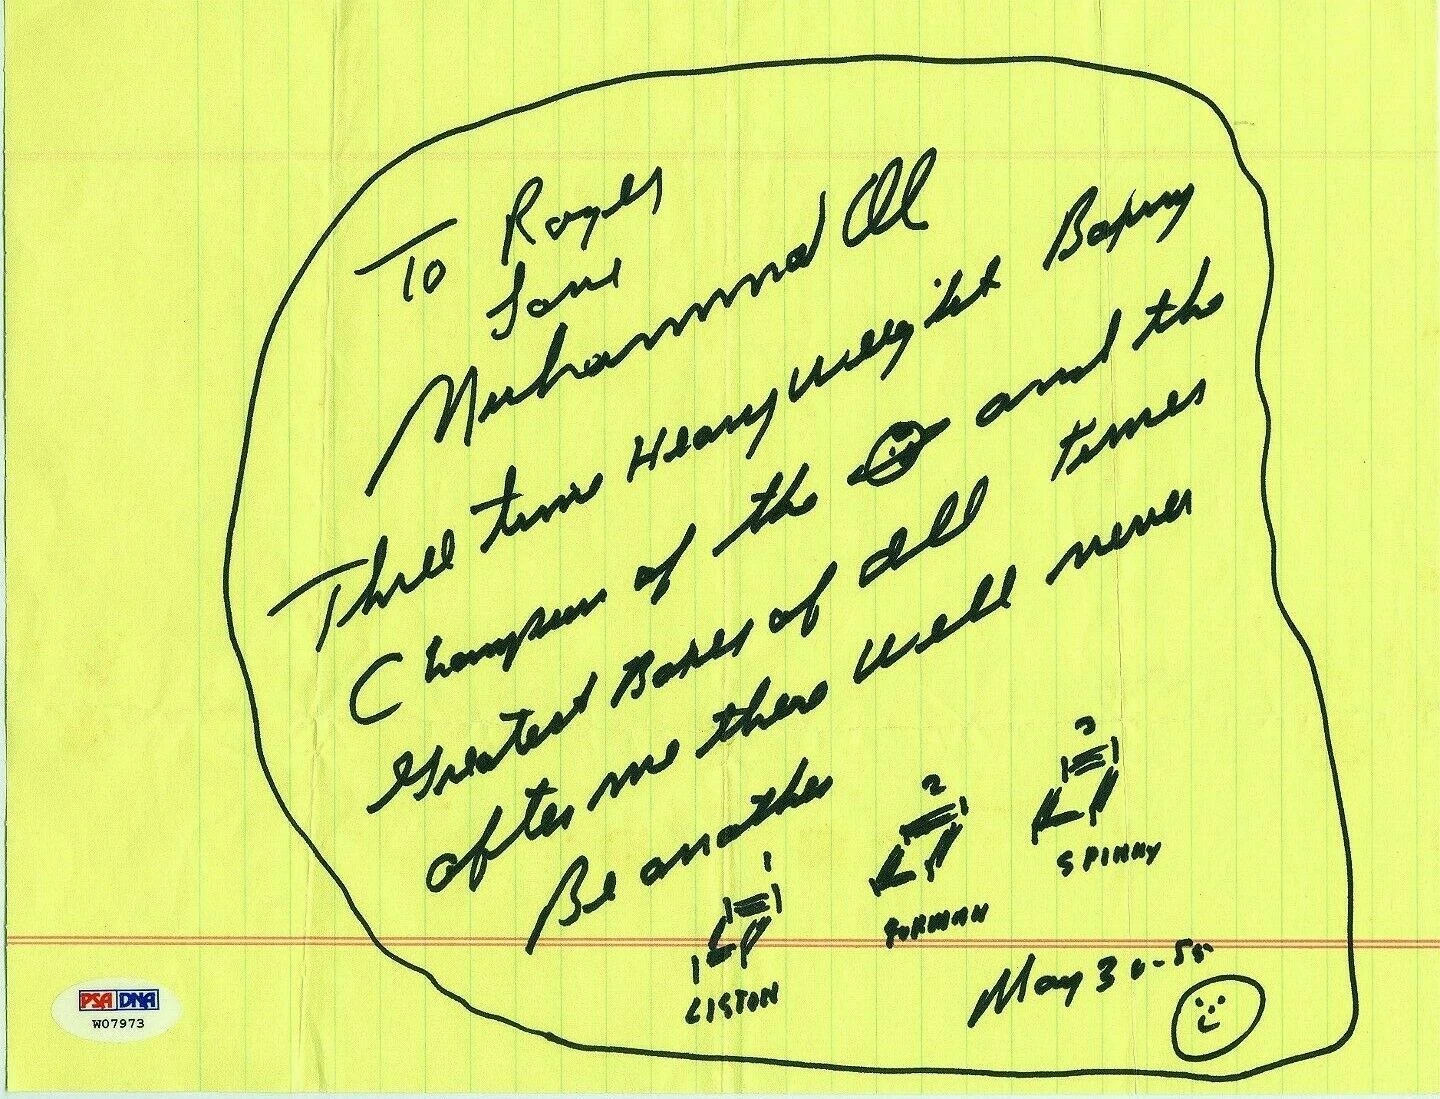 To Roger
Love
Muhammad Ali
Three time Heavyweight Boxing
Champion of the and the
greatest Boxer of all times
after me there will never
Be another
1
2
3
LISTON
FORMAN
SPINKY
May 30-85
PSA DNA
W07973